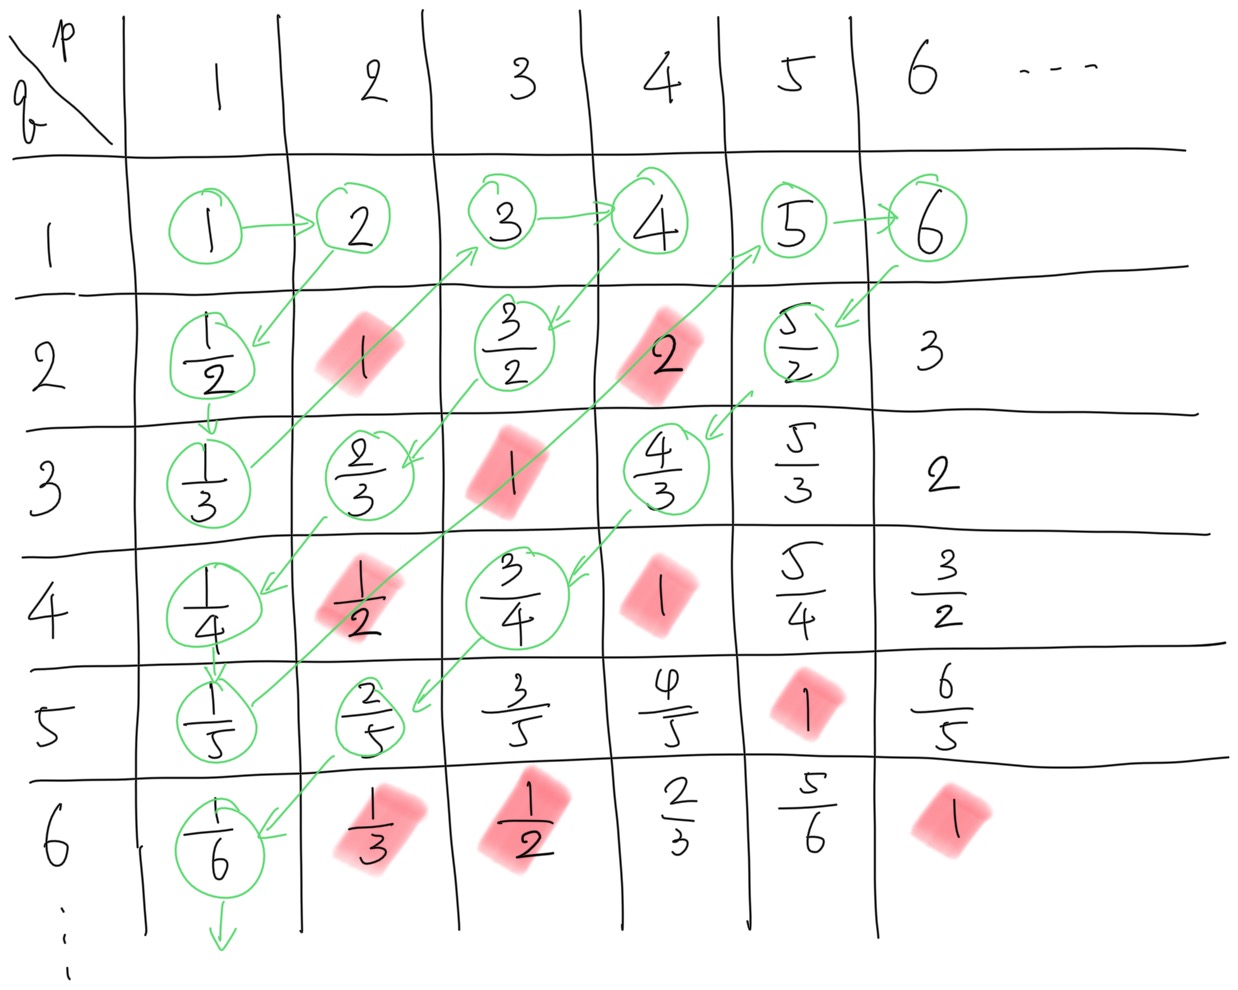 p
q 1 2 3 4 5 6 ---
1 1 2 3 4 5 6
2 1/2 1 3/2 2 5/2 3
3 1/3 2/3 1 4/3 5/3 2
4 1/4 1/2 3/4 1 5/4 3/2
5 1/5 2/5 3/5 4/5 1 6/5
6 1/6 1/3 1/2 2/3 5/6 1
⋮